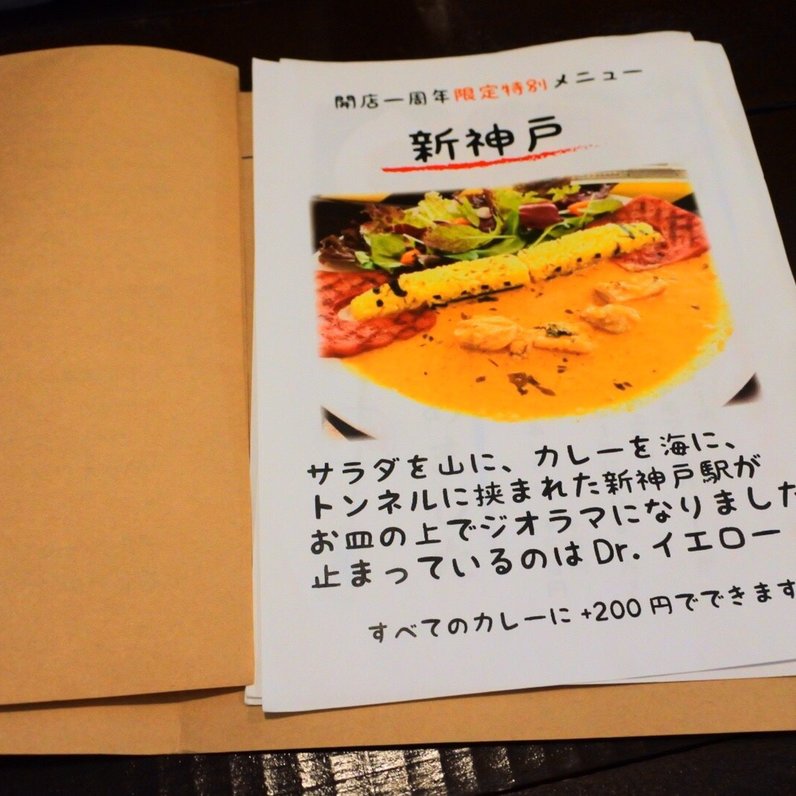 開店一周年限定特別メニュー
新神戸
サラダを山に、カレーを海に、
トンネルに挟まれた新神戸駅が
お皿の上でジオラマになりました
止まっているのは Dr. イエロー
すべてのカレーに +200 円でできます